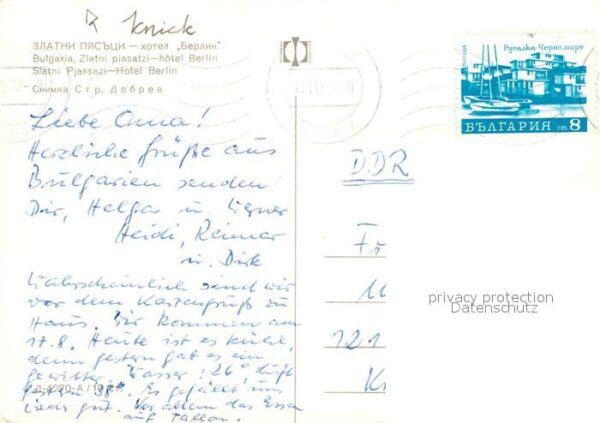 Knick
ЗЛАТНИ ПЯСЪЦИ — хотел „Берлин"
Bulgaria, Zlatni piasatzi—hôtel Berlin
Slatni Pjassazi—Hotel Berlin
Снимка Стр. Добрев
Русалка-Черно море
поща
БЪЛГАРИЯ ст 8
Liebe Oma!
Herzliche Grüße aus
Bulgarien senden
Dir, Helga u. Werner
Heidi, Reimar
u. Dirk
Wahrscheinlich sind wir
vor dem Kartengruß zu
Haus. Wir kommen am
17.8. Heute ist es kühl,
denn gestern gab es ein
Gewitter. Wasser: 26° Luft
gestern 38°. Es gefällt uns
wieder gut. Vor allem das Essen
auf
DDR
Fr
121
privacy protection
Datenschutz